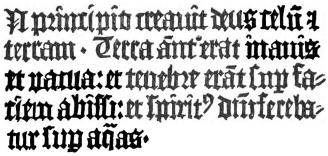 N principio creavit deus celū ⁊
terram · Terra āut erat inanis
et vacua: et tenebre erāt sup fa-
ciem abissi: et spiritꝰ dn̄i fereba-
tur sup aq̄as·